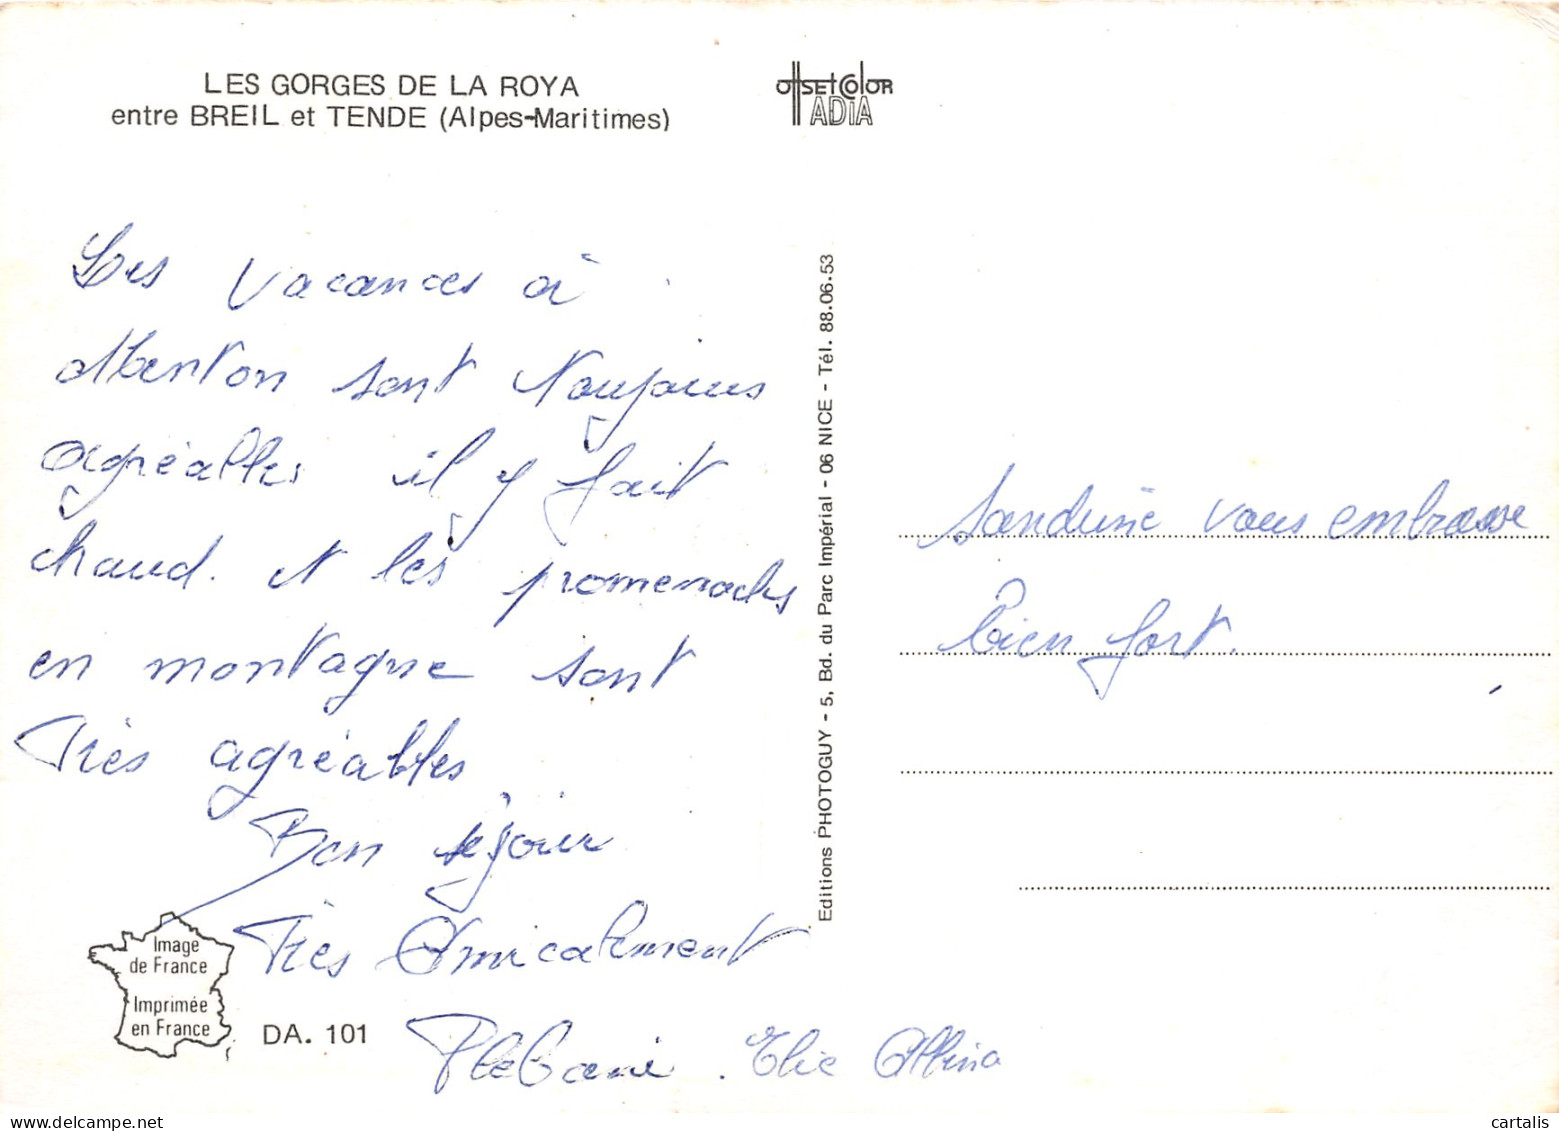 LES GORGES DE LA ROYA
entre BREIL et TENDE (Alpes-Maritimes)
OffsetColor
ADIA
Les vacances à
Menton sont toujours
agréables il y fait
chaud. et les promenades
en montagne sont
Très agréables
Bon séjour
Très Amicalement
Plebani. Elie Albina
Image
de France
Imprimée
en France
DA. 101
Editions PHOTOGUY - 5, Bd. du Parc Impérial - 06 NICE - Tél. 88.06.53
Sandrine vous embrasse
bien fort.
cartalis